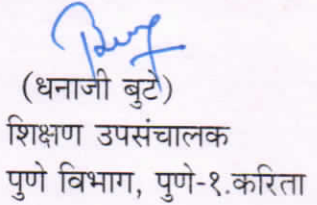 (धनाजी बुटे)
शिक्षण उपसंचालक
पुणे विभाग, पुणे-१.करिता